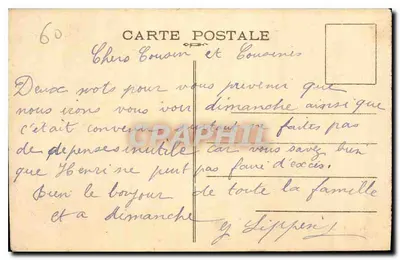 60
CARTE POSTALE
Chers Cousin et Cousines
Deux mots pour vous prevenir que
nous irons vous voir dimanche ainsi que
c'était convenu ne faites pas
de depenses inutile car vous savez bien
que Henri ne peut pas faire d'excès.
Bien le bonjour de toute la famille
et a dimanche